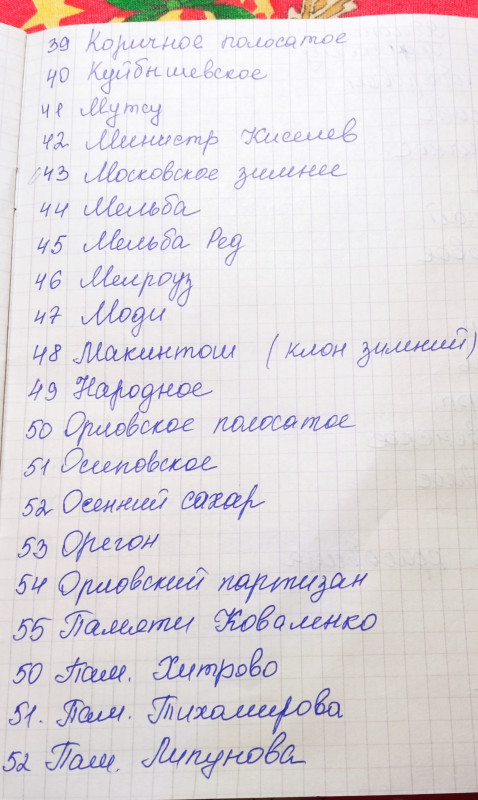 39 Коричное полосатое
40 Куйбышевское
41 Мутсу
42 Министр Киселев
43 Московское зимнее
44 Мельба
45 Мельба Ред
46 Мелроуз
47 Моди
48 Макинтош (клон зимний)
49 Народное
50 Орловское полосатое
51 Осиповское
52 Осенний сахар
53 Орегон
54 Орловский партизан
55 Памяти Коваленко
50 Пам. Хитрово
51. Пам. Тихамирова
52 Пам. Липунова